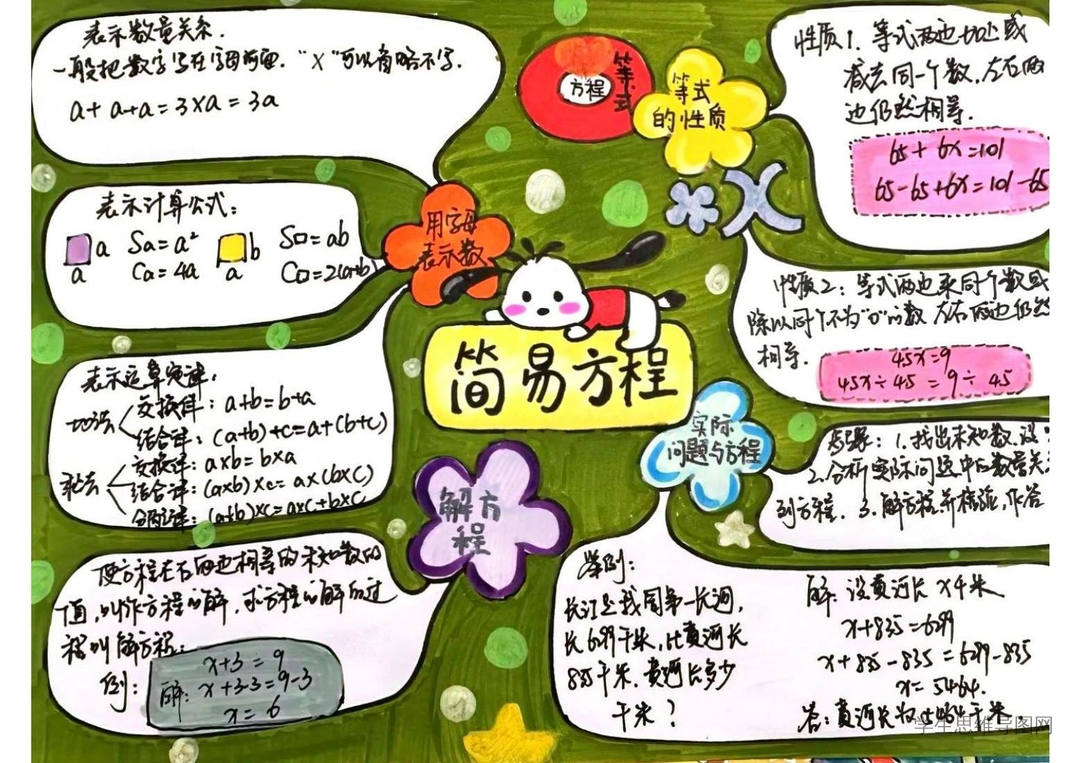 表示数量关系.
一般把数字写在字母前面. “×”可以省略不写.
a+a+a=3×a=3a
表示计算公式:
a
a
Sa=a²
Ca=4a
b
a
S□=ab
C□=2(a+b)
用字母
表示数
表示运算定律:
加法
交换律: a+b=b+a
结合律: (a+b)+c=a+(b+c)
乘法
交换律: a×b=b×a
结合律: (a×b)×c=a×(b×c)
分配律: (a+b)×c=a×c+b×c
使方程左右两边相等的未知数的
值,叫作方程的解,求方程的解的过
程叫解方程.
例:
x+3=9
解: x+3-3=9-3
x=6
解方
程
简易方程
方程
等式
等式
的性质
性质1. 等式两边加上或
减去同一个数,左右两
边仍然相等.
65+6x=101
65-65+6x=101-65
X
性质2: 等式两边乘同一个数或
除以同一个不为“0”的数 左右两边仍然
相等.
45x=9
45x÷45=9÷45
实际
问题与方程
步骤: 1.找出未知数,设
2.分析实际问题中的数量关
列方程. 3.解方程并检验,作答
举例:
长江是我国第一长河,
长6299千米,比黄河长
835千米.黄河长多少
千米?
解:设黄河长x千米
x+835=6299
x+835-835=6299-835
x=5464.
答:黄河长为5464千米.
学生思维导图网